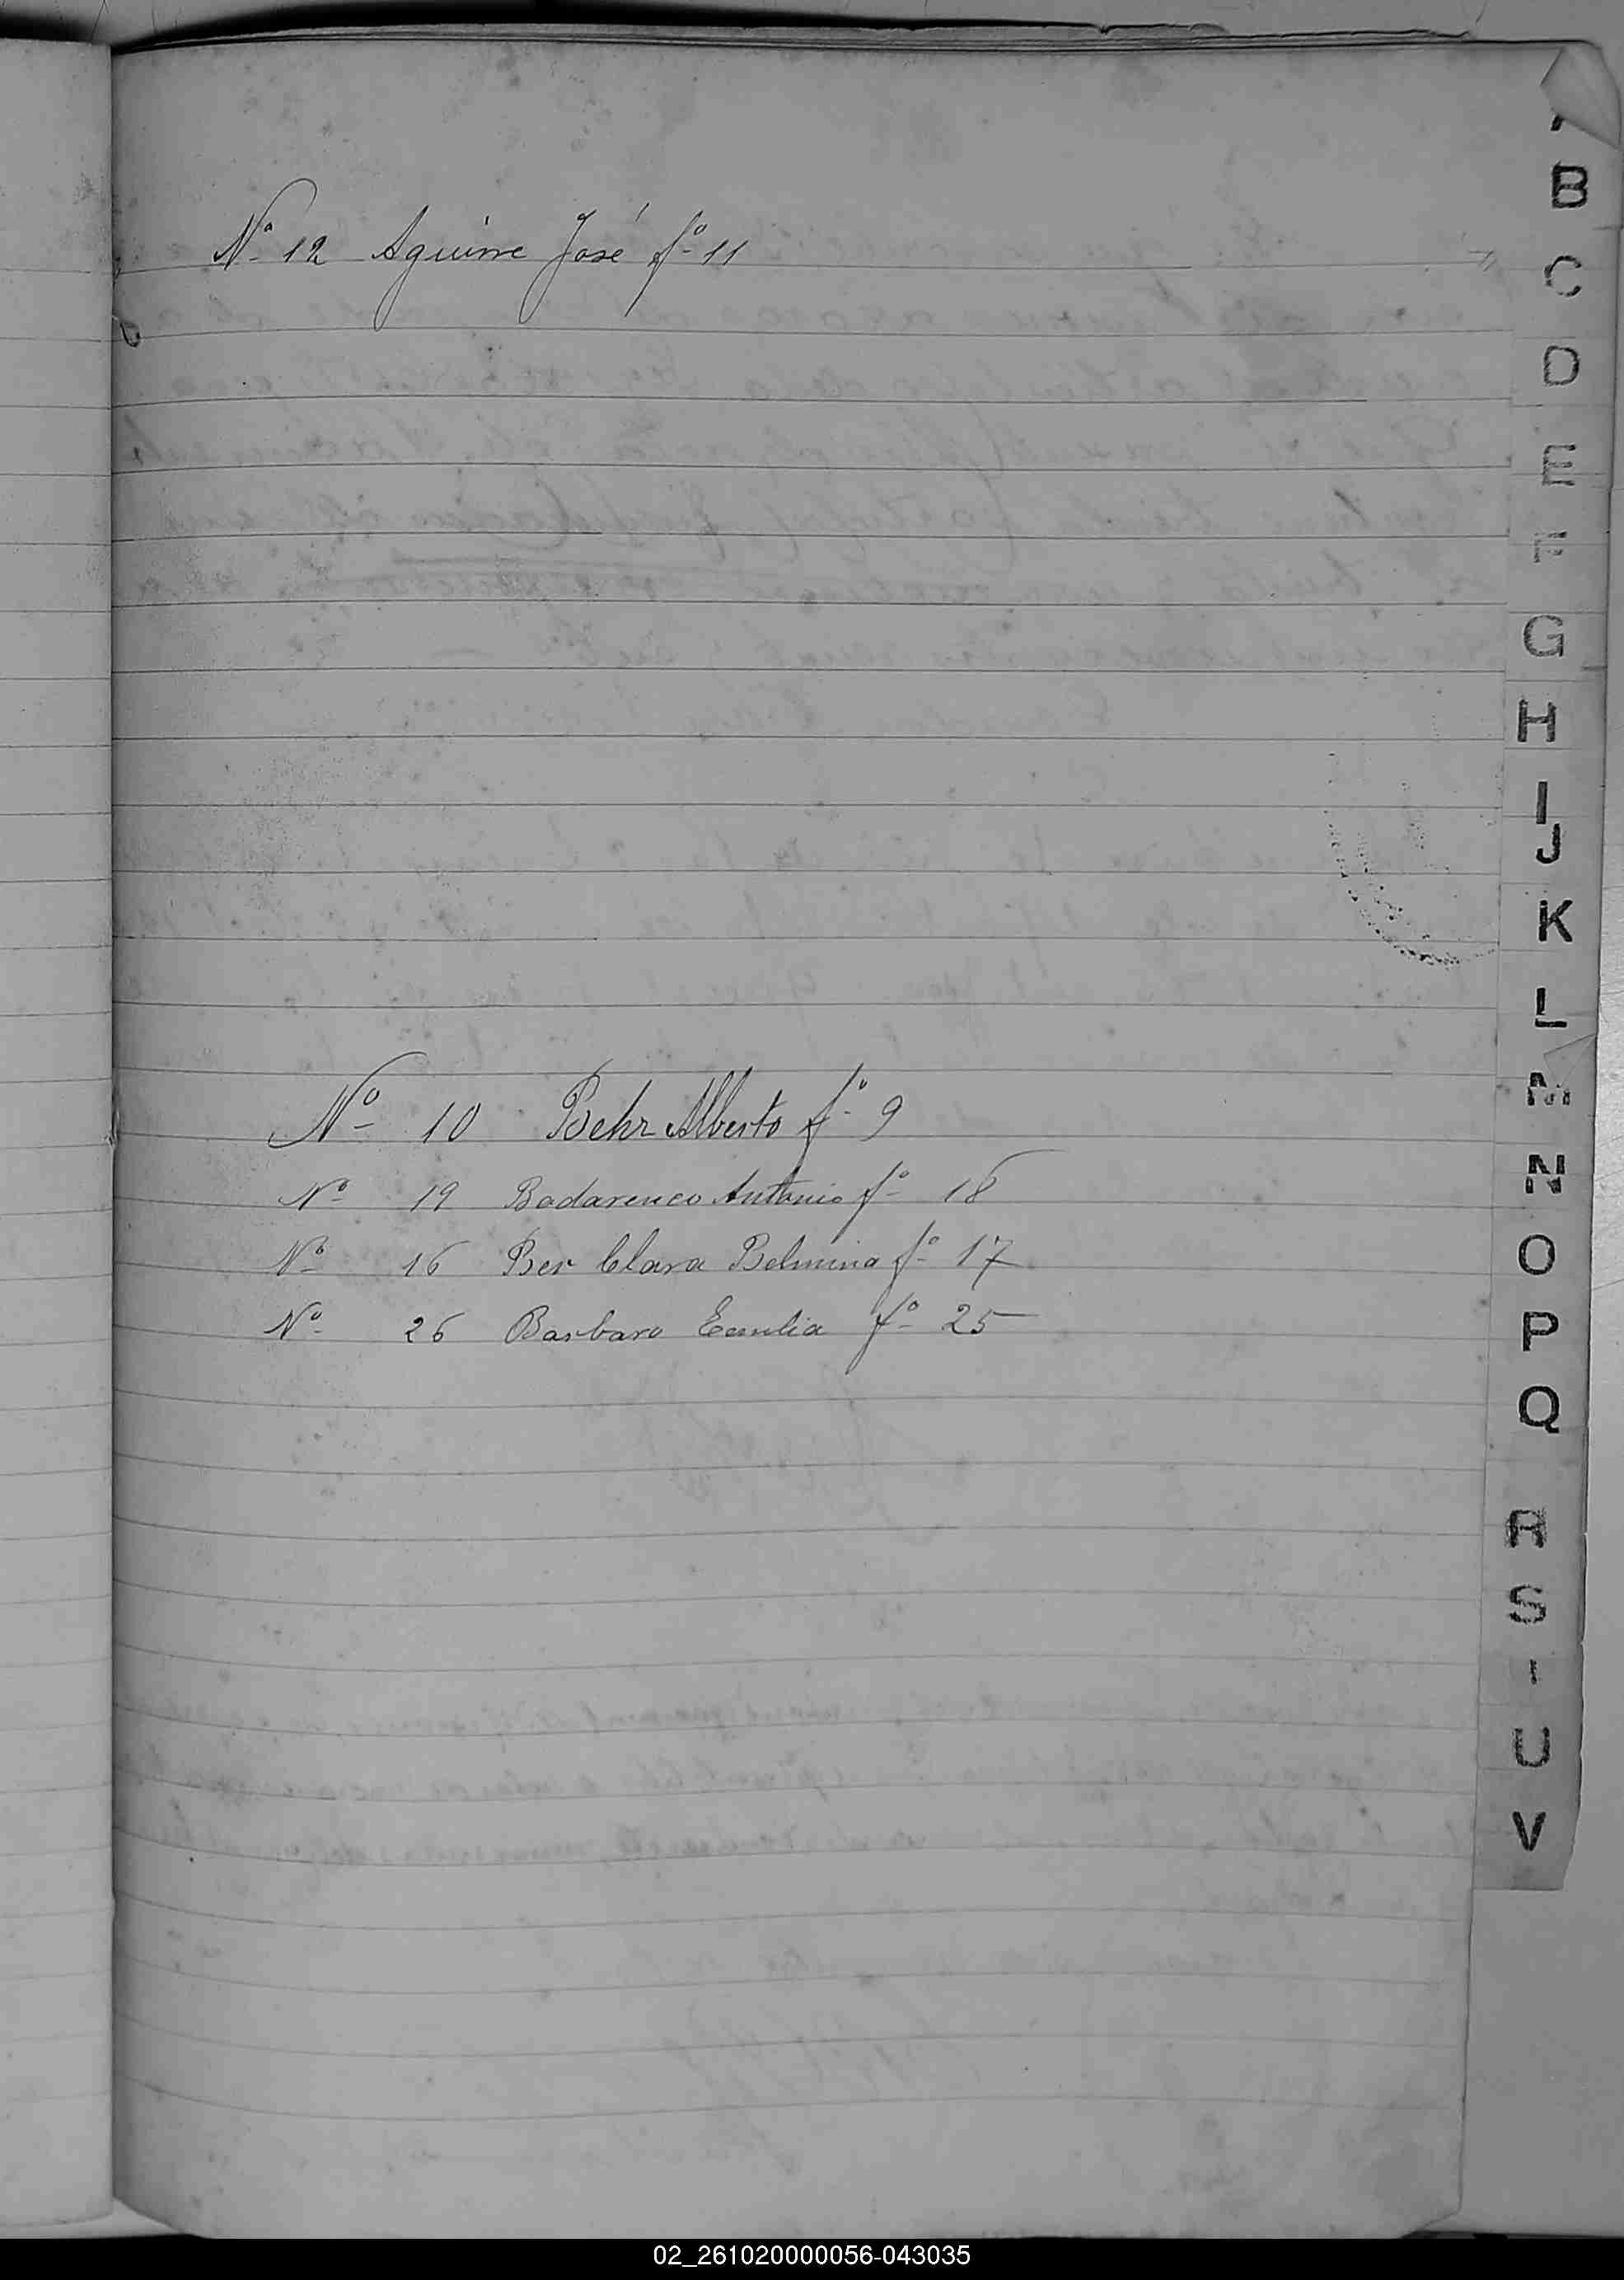 Nº 12 Aguirre José fº 11
Nº 10 Behr Alberto fº 9
Nº 19 Badarenco Antonio fº 18
Nº 16 Ber Clara Belmina fº 17
Nº 26 Barbaro Emilia fº 25
B
C
D
E
F
G
H
I
J
K
L
M
N
O
P
Q
R
S
U
V
02_261020000056-043035